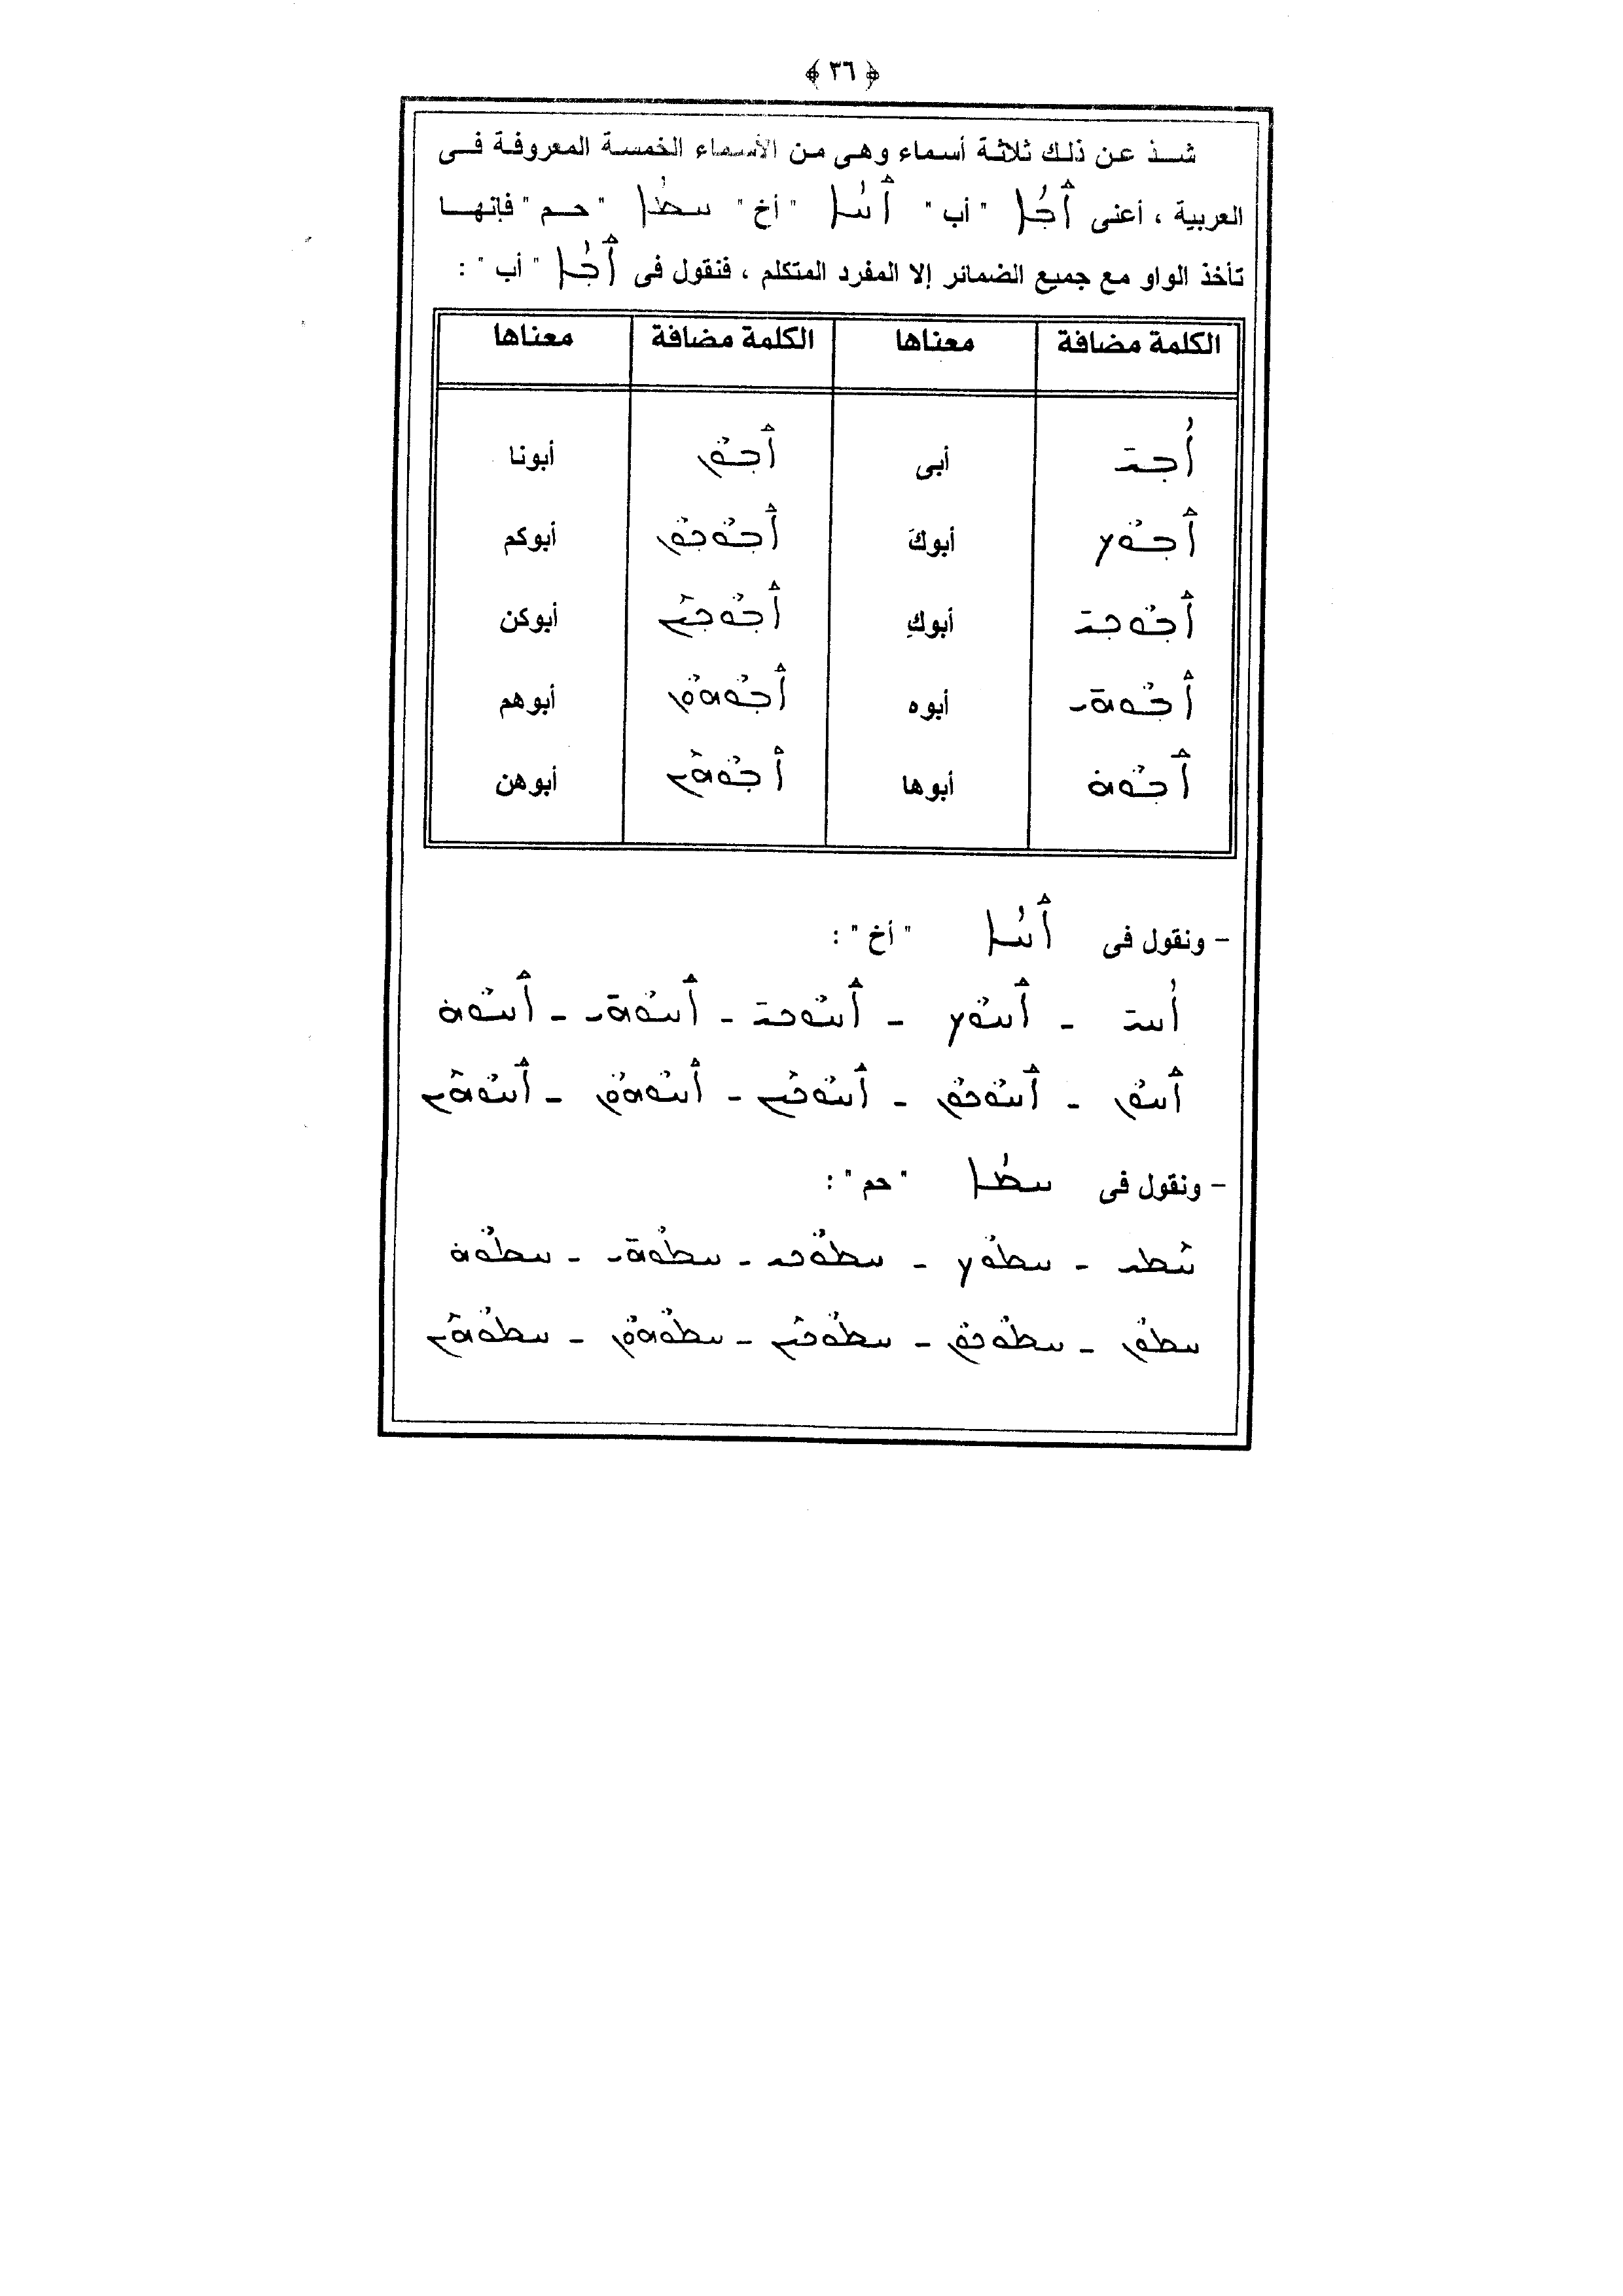 ﴿ ٣٦ ﴾
شذ عن ذلك ثلاثة أسماء وهى من الأسماء الخمسة المعروفة فى
العربية ، أعنى ܐܰܒܳܐ " أب " ܐܰܚܳܐ " أخ " ܚܡܳܐ " حم " فإنها
تأخذ الواو مع جميع الضمائر إلا المفرد المتكلم ، فنقول فى ܐܰܒܳܐ " أب " :
الكلمة مضافة معناها الكلمة مضافة معناها
ܐܳܒܝ أبى ܐܰܒܘܢ أبونا
ܐܰܒܘܟ أبوكَ ܐܰܒܘܟܘܢ أبوكم
ܐܰܒܘܟܝ أبوكِ ܐܰܒܘܟܶܝܢ أبوكن
ܐܰܒܘܗܝ أبوه ܐܰܒܘܗܘܢ أبوهم
ܐܰܒܘܗ أبوها ܐܰܒܘܗܶܝܢ أبوهن
– ونقول فى ܐܰܚܳܐ " أخ " :
ܐܳܚܝ - ܐܰܚܘܟ - ܐܰܚܘܟܝ - ܐܰܚܘܗܝ - ܐܰܚܘܗ
ܐܰܚܘܢ - ܐܰܚܘܟܘܢ - ܐܰܚܘܟܶܝܢ - ܐܰܚܘܗܘܢ - ܐܰܚܘܗܶܝܢ
– ونقول فى ܚܡܳܐ " حم " :
ܚܶܡܝ - ܚܡܘܟ - ܚܡܘܟܝ - ܚܡܘܗܝ - ܚܡܘܗ
ܚܡܘܢ - ܚܡܘܟܘܢ - ܚܡܘܟܶܝܢ - ܚܡܘܗܘܢ - ܚܡܘܗܶܝܢ